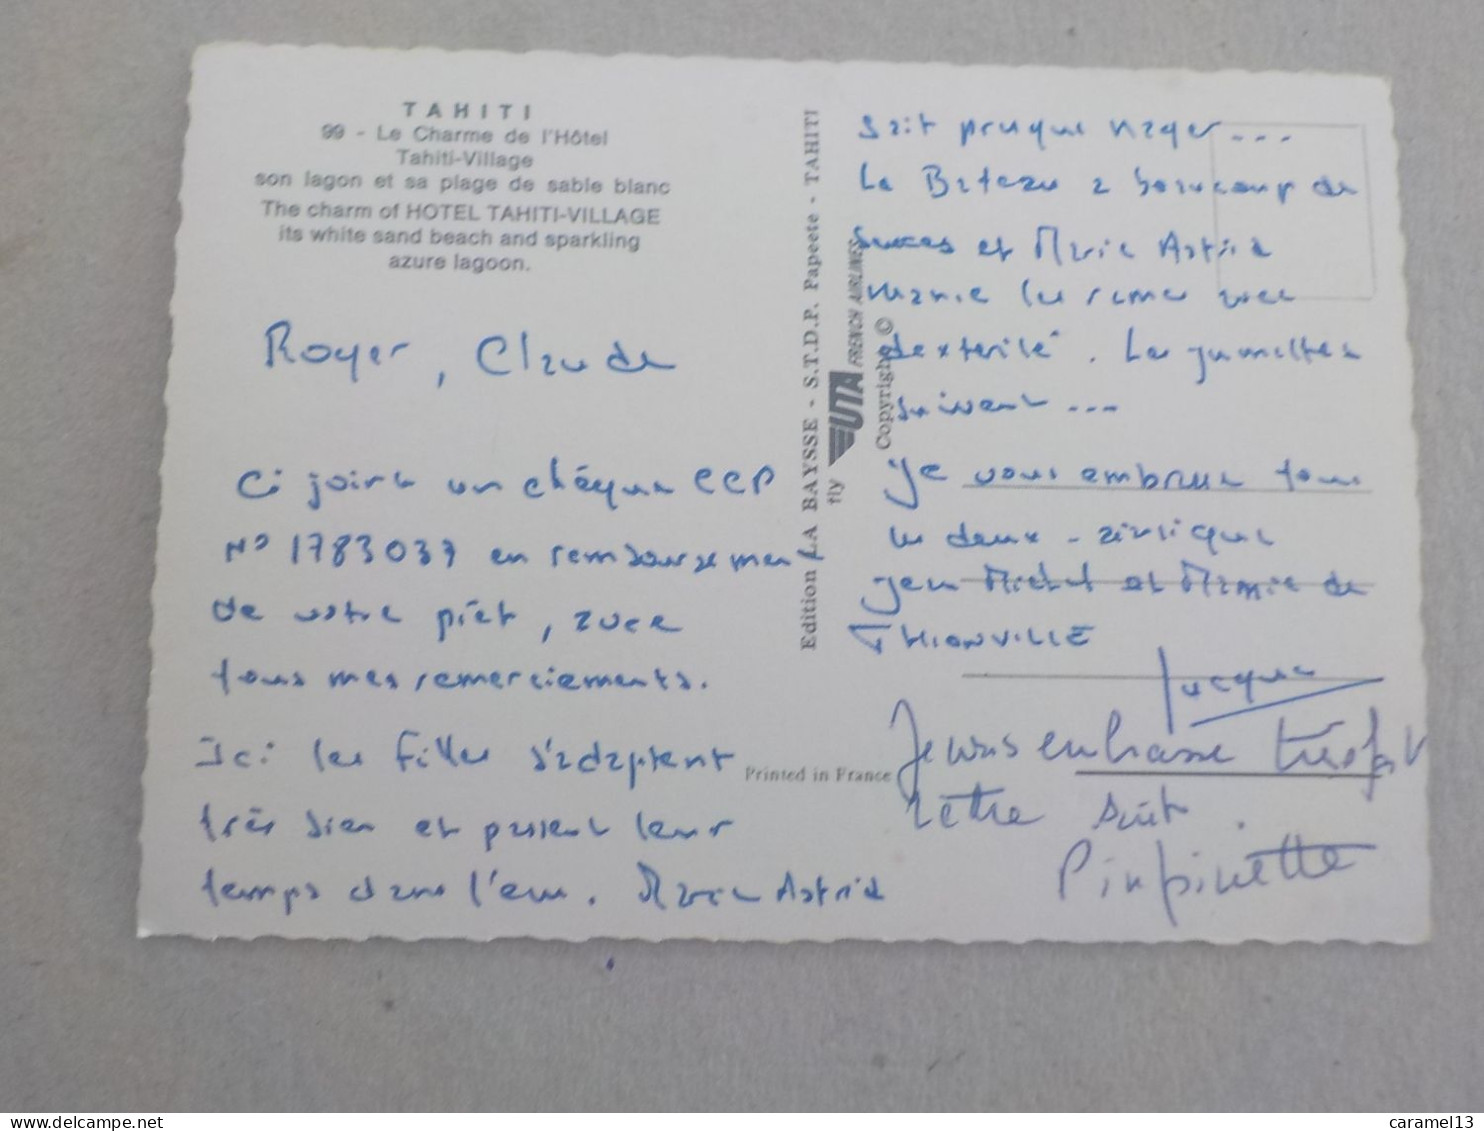 TAHITI
99 - Le Charme de l'Hôtel
Tahiti-Village
son lagon et sa plage de sable blanc
The charm of HOTEL TAHITI-VILLAGE
its white sand beach and sparkling
azure lagoon.
Roger, Claude
Ci joint un chéque CCP
N° 1783037 en remboursement
de votre prêt, avec
tous mes remerciements.
Ici les filles s'adaptent
très bien et passent leur
temps dans l'eau. Marie Astrid
Edition LA BAYSSE - S.T.D.P. Papeete - TAHITI
fly UTA FRENCH AIRLINES
Copyright ©
Printed in France
sait presque nager ---
Le Bateau a beaucoup de
succes et Marie Astrid
manie les rames avec
dexterité. Les jumelles
suivent ---
Je vous embrasse tous
les deux - ainsi que
Jean Michel et Mamie de
THIONVILLE
Jacques
Je vous embrasse très fort
lettre suit.
Pimpinette
caramel13
delcampe.net